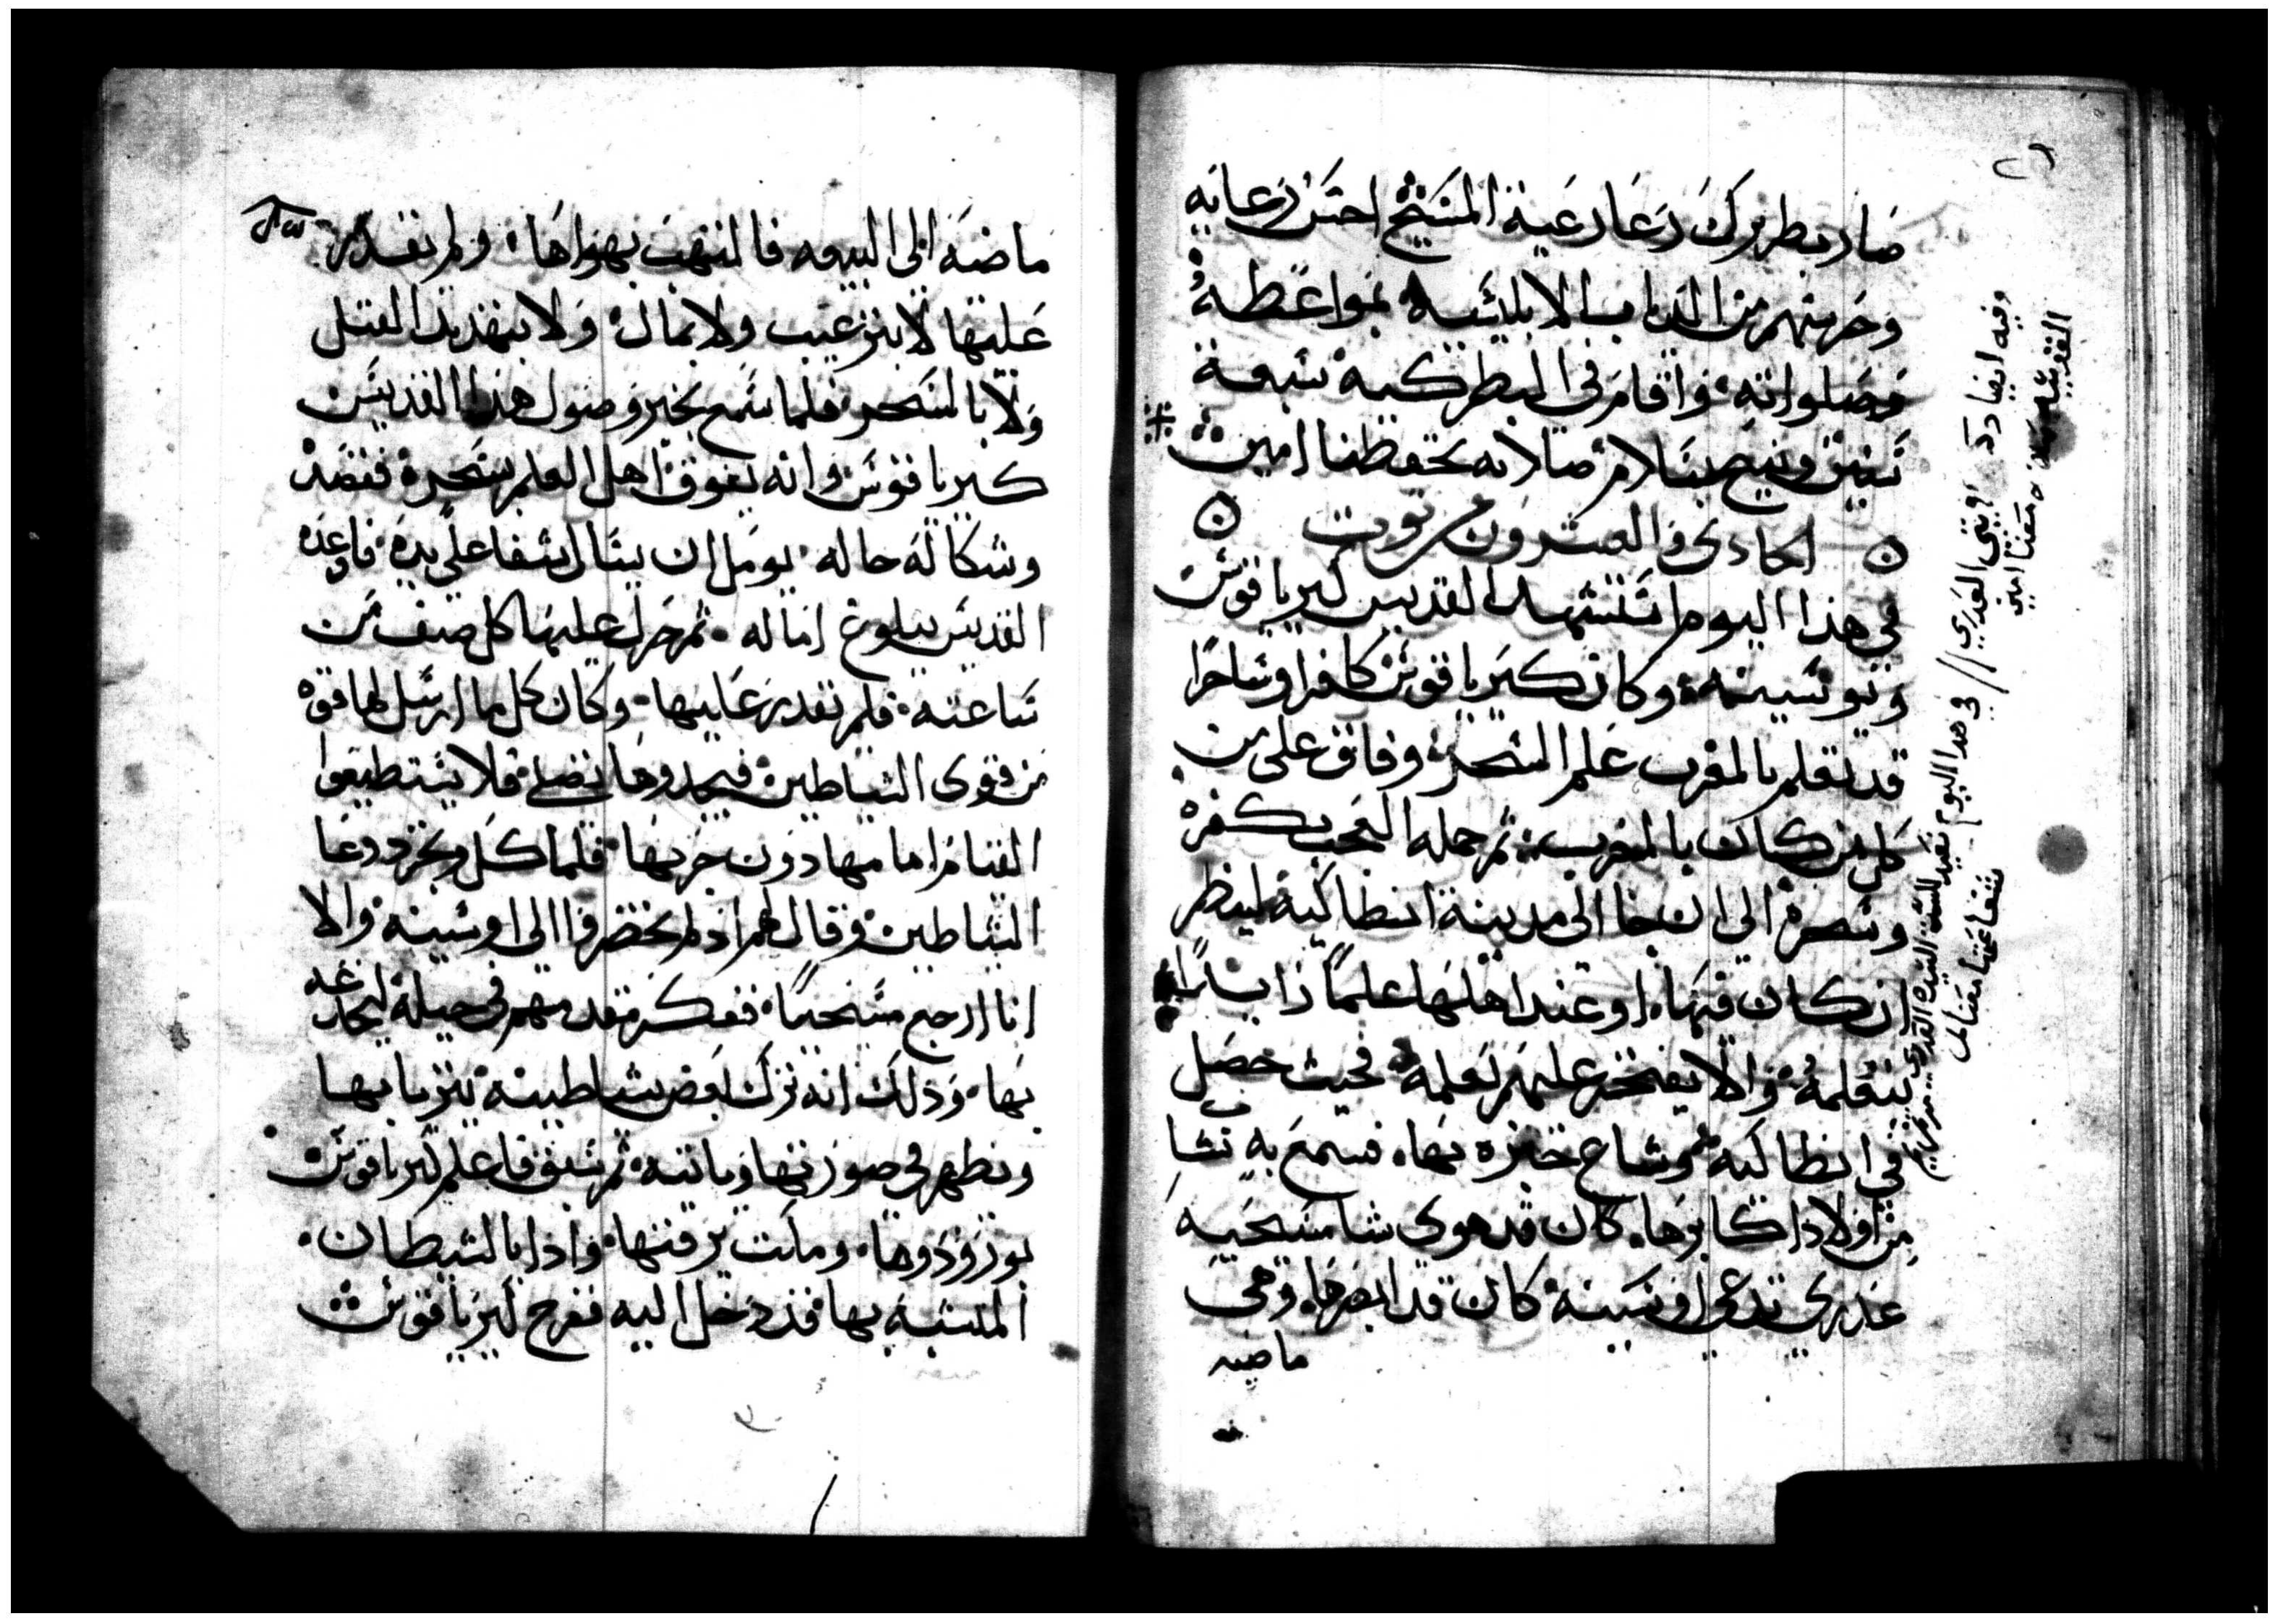 صار بطريرك رعا رعية المسيح احسن رعايه
وحرسهم من الدياب الابليسيه بمواعظه
وصلواته واقام في البطركيه سبعة
سنين وتنيح بسلام صلاته تحفظنا امين
الحادى والعشرون من توت
في هذا اليوم استشهد القديس كبريانوس
ويوستينه وكان كبريانوس كافرا وساحرا
قد تعلم بالمغرب علم السحر وفاق على من
كل من كان بالمغرب ثم حمله العجب بكفره
وسحره الى ان جا الى مدينة انطاكيه لينظر
ان كان فيها او عند اهلها علما زايدا
يتعلمه والا يفتخر عليهم بعلمه فحيث حصل
في انطاكيه وشاع خبره بها فسمع به شاب
من اولاد اكابرها كان قد هوى شابه مسيحيه
عذرى تدعى اوستينه كان قد ابصرها وهى
ماضيه
وفيه ايضا ذكر العذرى // في هذا اليوم تعيد للست السيده العذرى مرتمريم
شفاعتها معنا امين
ماضيه الى البيعه فالتهب بهواها ولم يقدر
عليها لا بترغيب ولا بمال ولا بتهديد القتل
ولا بالسحر فلما سمع بخبر وصول هذا القديس
كبريانوس وانه يفوق اهل العلم بسحره فقصد
وشكا له حاله يومل ان ينال الشفا على يده فاوعده
القديس ببلوغ اماله ثم حرك عليها كل صنف من
صناعته فلم يقدر عليها وكان كل ما ارسل لها قوه
من قوى الشياطين فيجدوها تصلي فلا يستطيعوا
القيام امامها دون حربها فلما كل وعجز دعا
الشياطين وقال لهم اذ لم تحضروا الى اوستينه والا
انا ارجع مسيحيا ففكر مقدمهم في حيله ليخادعه
بها وذلك انه ترك بعض شياطينه يتزيا بها
ويظهر في صورتها وياتيه ثم سبق فاعلم كبريانوس
المتشبه بها قد دخل اليه ففرح كبريانوس